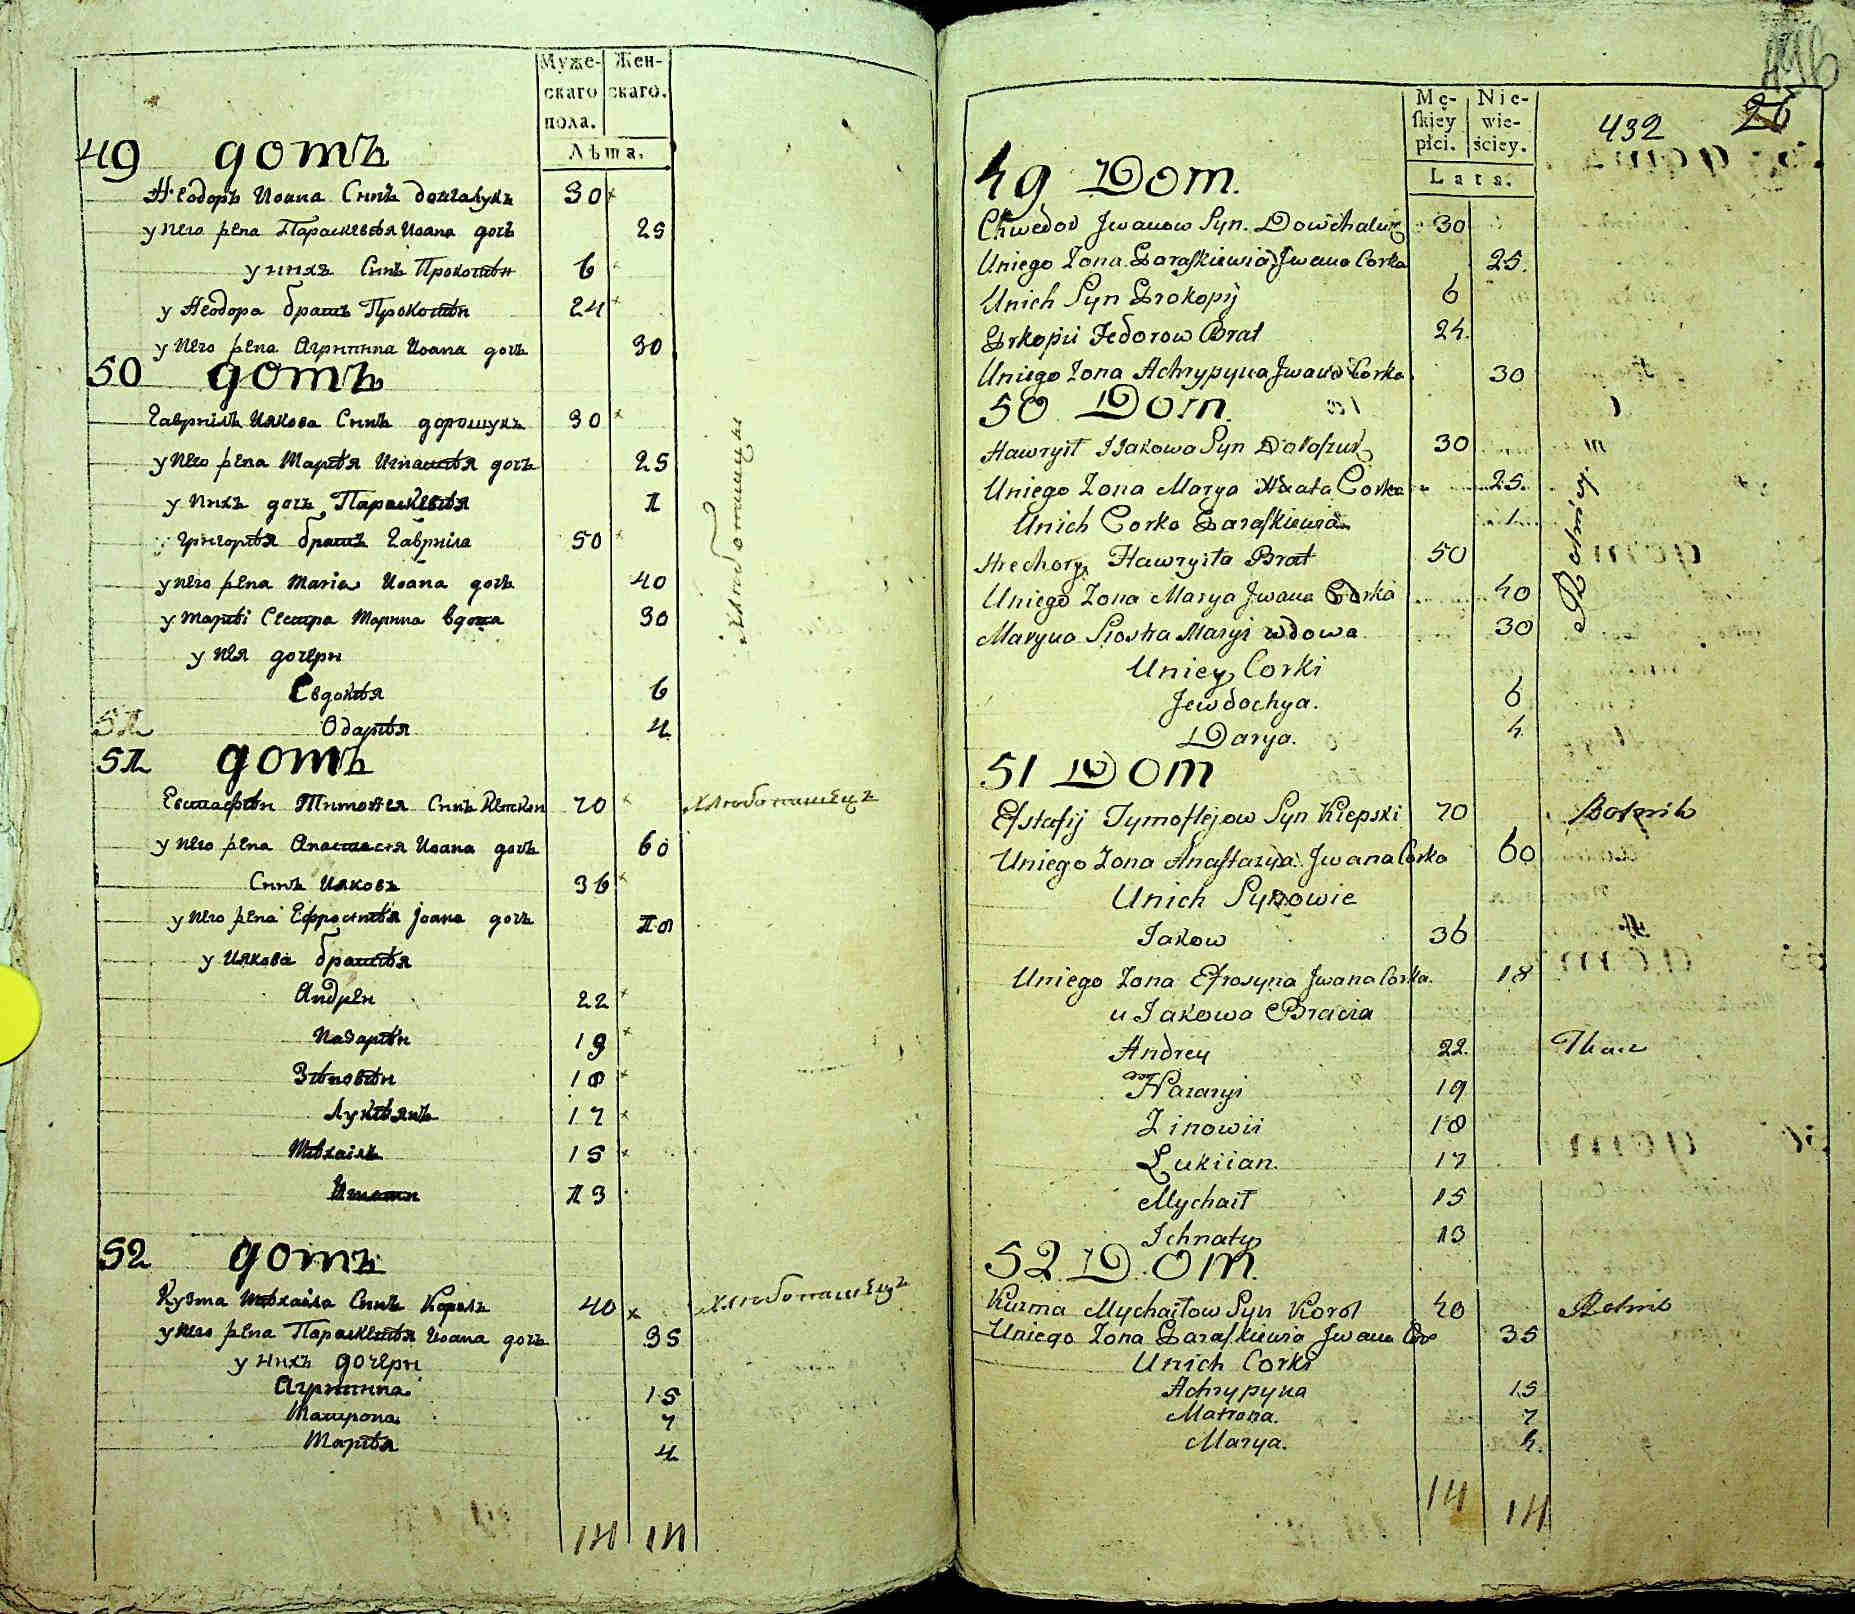 Муже-
скаго
пола.
Жен-
скаго.
Лѣта.
49 домъ
Ѳеодоръ Иоана Синъ довгалукъ 30
у него жена Параскевѣя Иоана дочь 25
у нихъ Синъ Прокопѣи 6
у Ѳеодора братъ Прокопѣи 24
у него жена Агрипина Иоана дочъ 30
50 домъ
Гаврiилъ Иякова Синъ дорошукъ 30
у него жена Марѣя Игнатѣя дочъ 25
у нихъ дочъ Параскевѣя 1
Григорѣя братъ Гаврiила 50
у него жена Мария Иоана дочъ 40
у Марѣi Сестра Марина вдова 30
у нея дочери
Евдокѣя 6
51 Одарѣя 4
хлѣбопашцы
51 домъ
Евстафѣи Тимоѳея Синъ Кепски 70 хлѣбопашецъ
у него жена Анастася Иоана дочъ 60
Синъ Ияковъ 36
у него жена Ефросинѣя Iоана дочъ 18
у Иякова братѣя
Андреи 22
Назарѣи 19
Зѣновѣи 18
Лукѣянъ 17
Мѣхаiлъ 15
Игнати 13
52 домъ
Кузма Мѣхаiла Синъ Король 40 хлѣбопашецъ
у него жена Параскевѣя Иоана дочъ 35
у нихъ дочери
Агрипина 15
Матрона 7
Марѣя 4
14 14
Mę-
skiey
płci.
Nie-
wie-
ściey.
Lata.
432 26
49 Dom.
Chwedor Jwanow Syn. Dowhaluk 30
Uniego Zona Paraskiewia Jwana Corka 25.
Unich Syn Prokopij 6
Prkopii Fedorow Brat 24.
Uniego Zona Achrypyna Jwana Corka 30
50 Dom.
Hawryił Jjakowa Syn Doroszuk 30
Uniego Zona Marya Hnata Corka 25.
Unich Corka Paraskiewia 1
Hrechory Hawryiła Brat 50
Uniego Zona Marya Jwana Corka 40
Maryna Siostra Maryi wdowa 30
Uniey Corki
Jewdochya. 6
Darya. 4
Rolnicy
51 Dom
Efstafij Tymoftejow Syn Kiepski 70 Rolnik
Uniego Zona Anastazya Jwana Corka 60
Unich Synowie
Jakow 36
Uniego Zona Efrosyna Jwana Corka. 18
u Jakowa Bracia
Andrey 22. Tkacz
Nazaryi 19
Zinowii 18
Lukiian. 17
Mychaił 15
Jchnaty 13
52 Dom.
Kuzma Mychaiłow Syn Korol 40 Rolnik
Uniego Zona Paraskiewia Jwana Cor 35
Unich Corki
Achrypyna 15
Matrona. 7
Marya. 4.
14 14